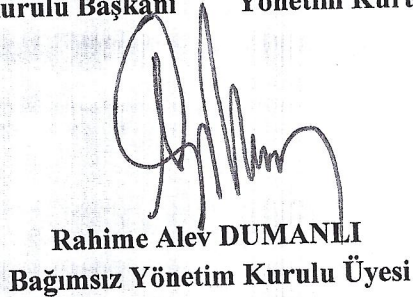 urulu Başkanı Yönetim Kuru
Rahime Alev DUMANLI
Bağımsız Yönetim Kurulu Üyesi